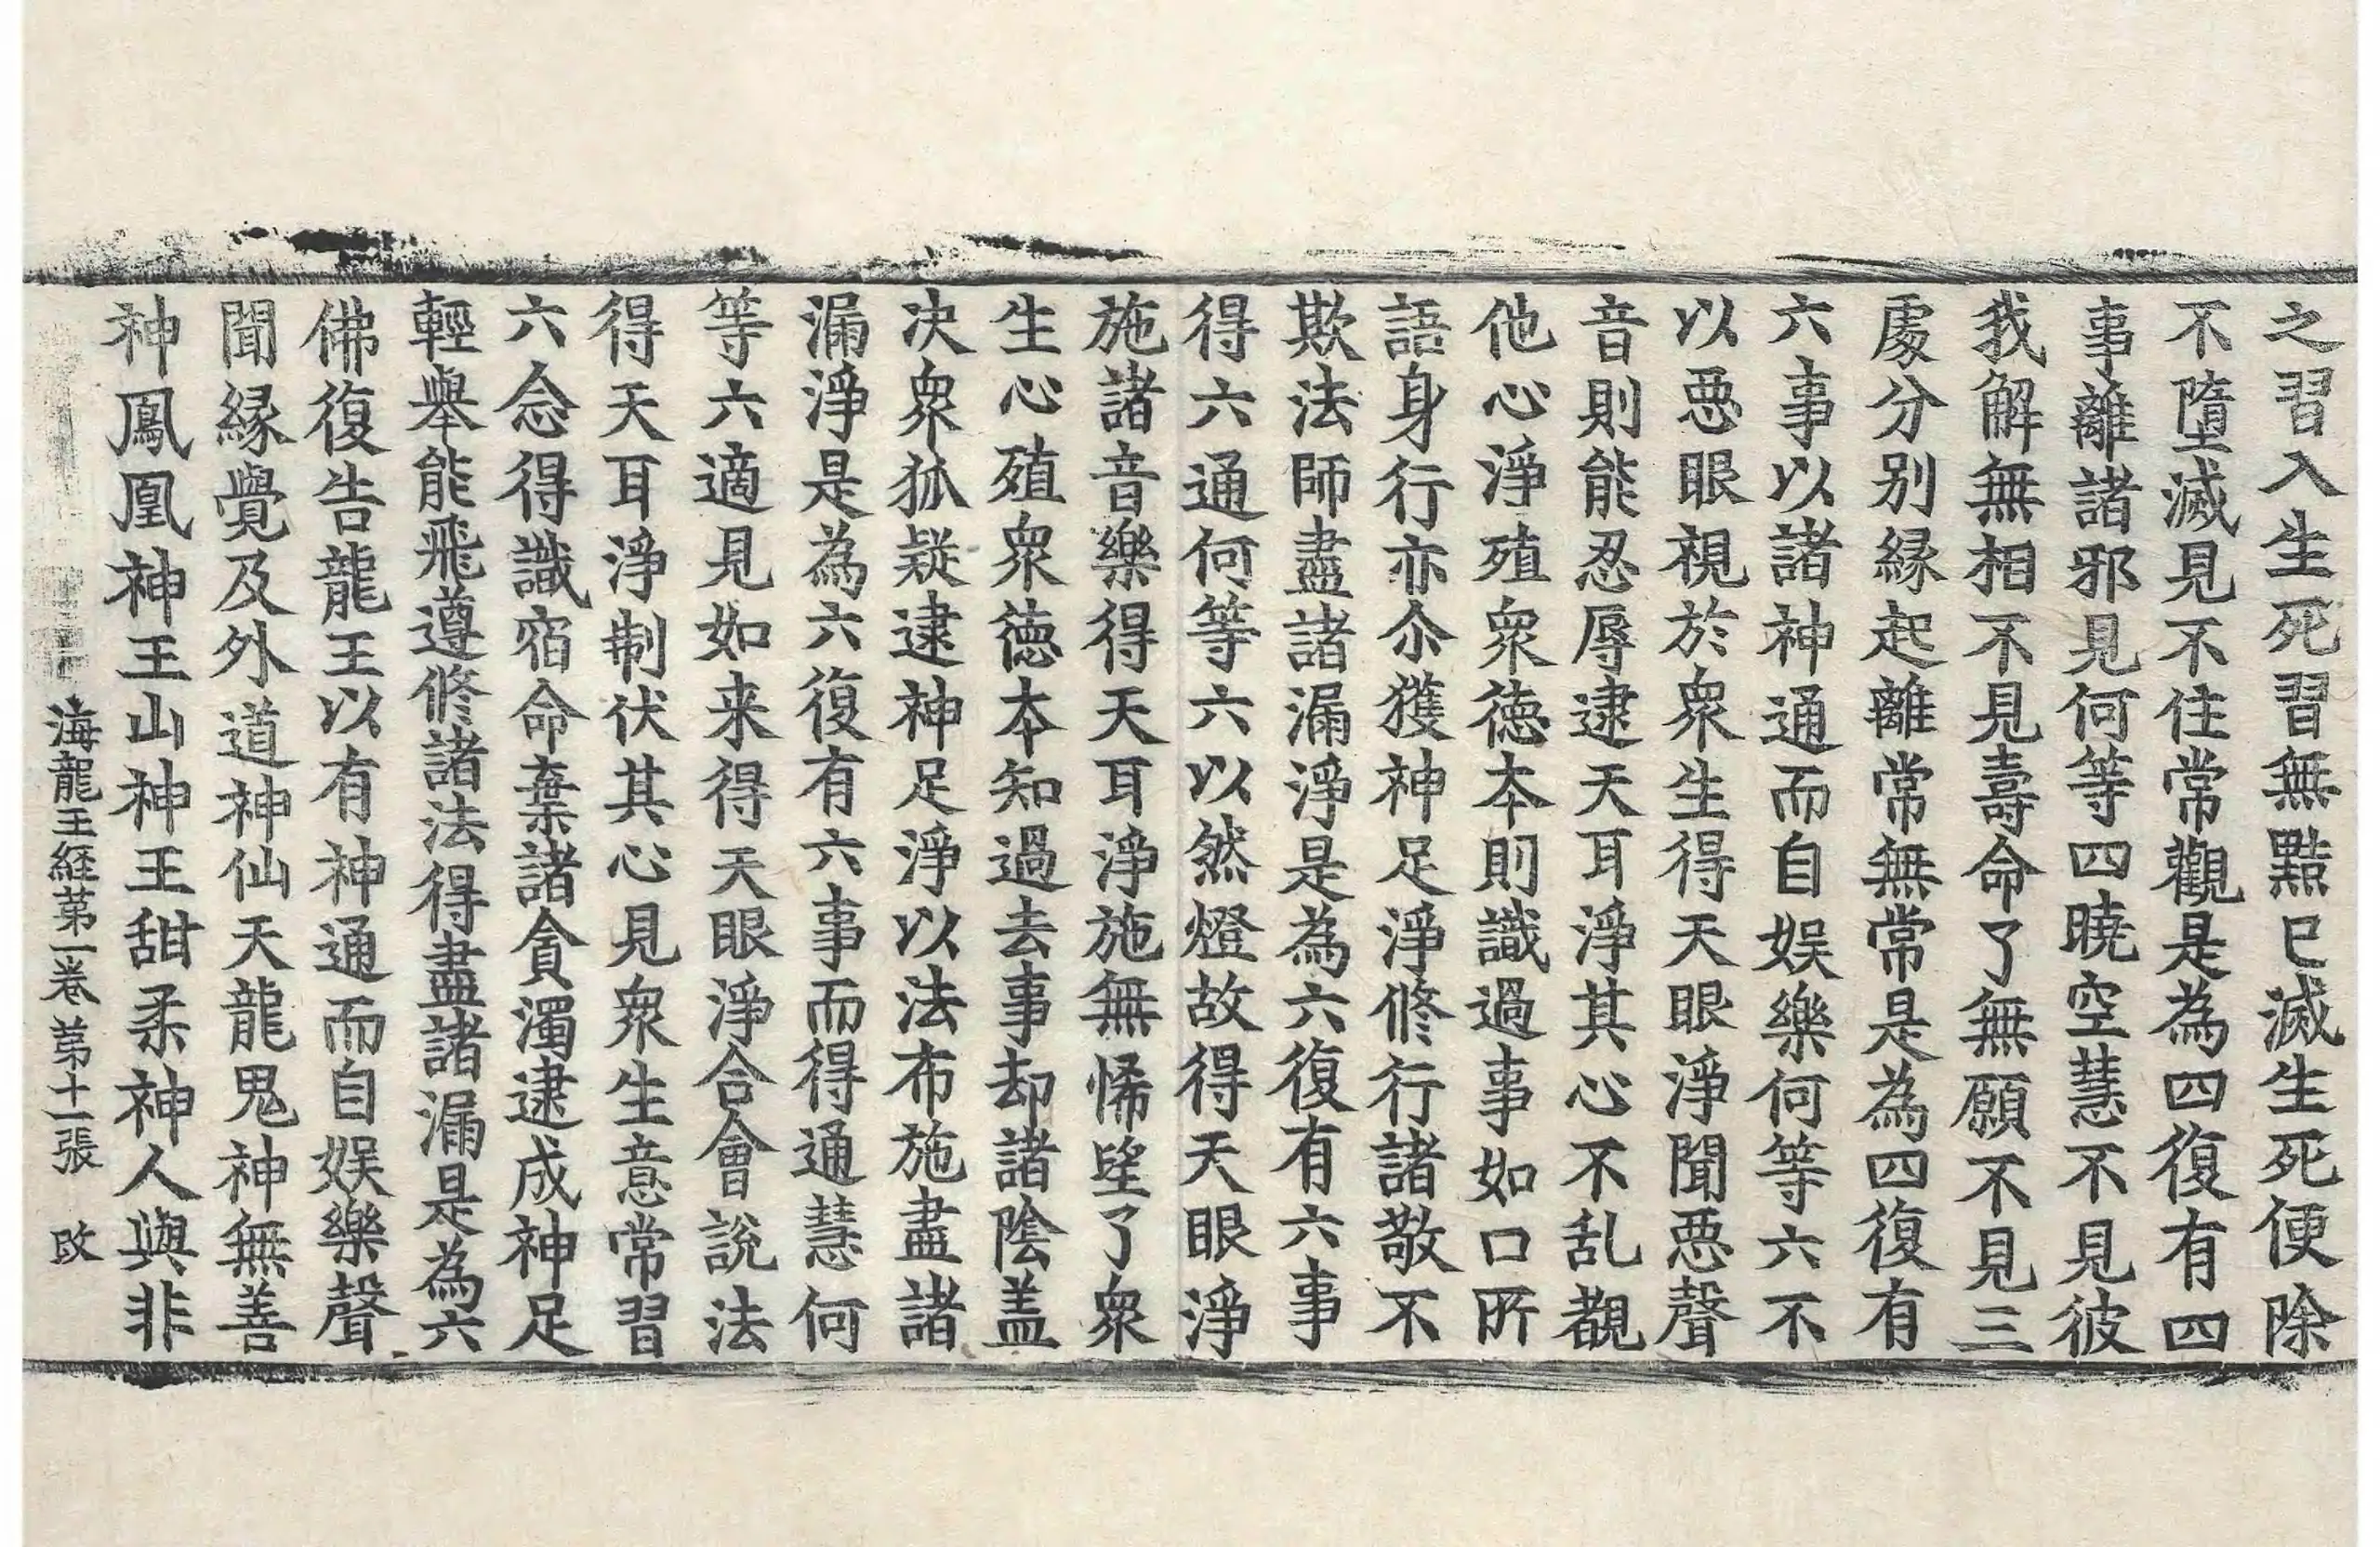 之習入生死習無黠已滅生死便除
不墮滅見不住常觀是為四復有四
事離諸邪見何等四曉空慧不見彼
我解無相不見壽命了無願不見三
處分別縁起離常無常是為四復有
六事以諸神通而自娱樂何等六不
以惡眼視於衆生得天眼淨聞惡聲
音則能忍辱逮天耳淨其心不乱覩
他心淨殖衆徳本則識過事如口所
語身行亦尒獲神足淨修行諸敬不
欺法師盡諸漏淨是為六復有六事
得六通何等六以然燈故得天眼淨
施諸音樂得天耳淨施無悕望了衆
生心殖衆徳本知過去事却諸陰盖
决衆狐疑逮神足淨以法布施盡諸
漏淨是為六復有六事而得通慧何
等六適見如来得天眼淨合會說法
得天耳淨制伏其心見衆生意常習
六念得識宿命棄諸貪濁逮成神足
輕舉能飛遵修諸法得盡諸漏是為六
佛復告龍王以有神通而自娱樂聲
聞縁覺及外道神仙天龍鬼神無善
神鳳凰神王山神王甜柔神人與非
海龍王経苐一卷 苐十一張 㪅